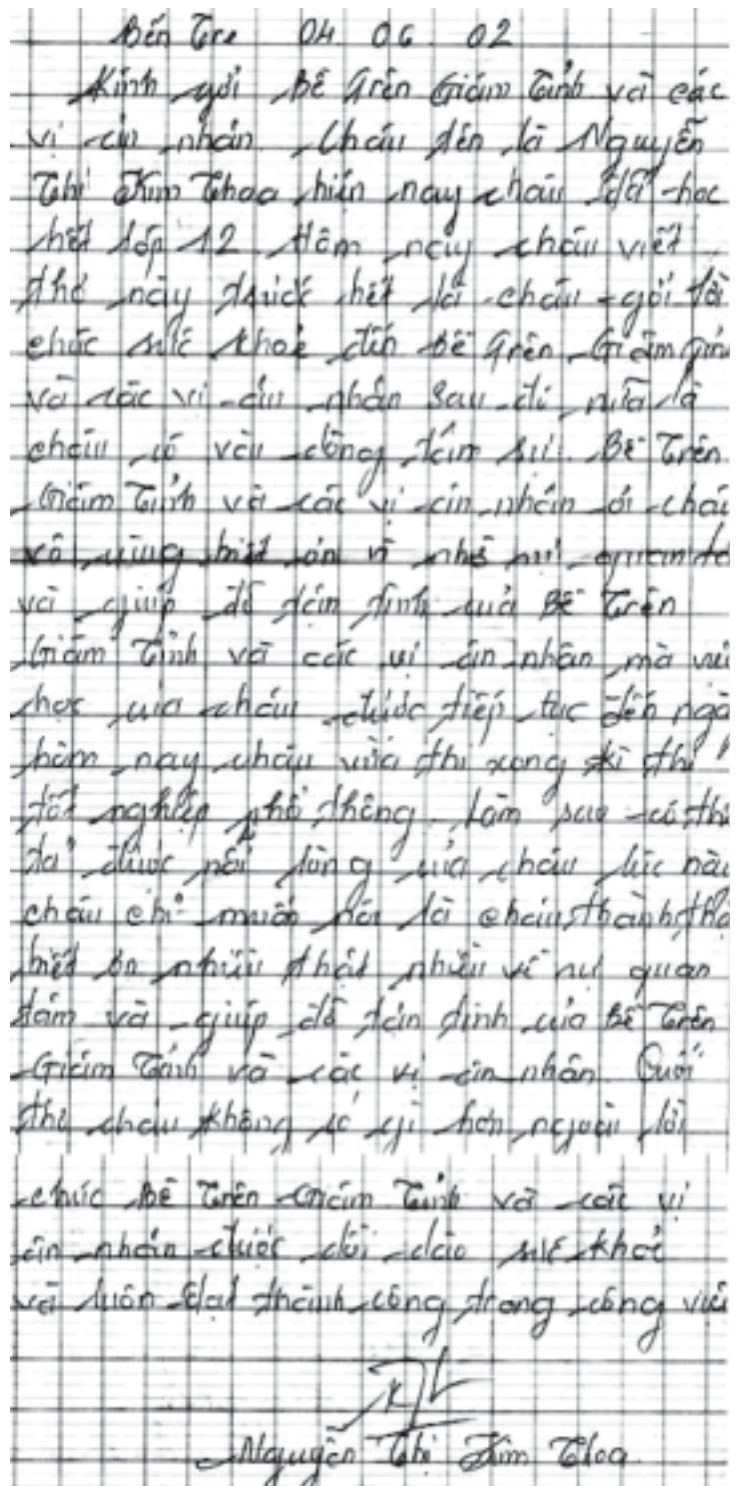 Bến Tre 04 06 02
Kính gởi Bề Trên Giám Tỉnh và các
vị ân nhân. Cháu tên là Nguyễn
Thị Kim Thoa hiện nay cháu đã học
hết lớp 12. Hôm nay cháu viết
thơ này trước hết là cháu gởi lời
chúc sức khoẻ đến Bề Trên Giám Tỉnh
và các vị ân nhân sau đó nữa là
cháu có vài dòng tâm sự. Bề Trên
Giám Tỉnh và các vị ân nhân ơi cháu
vô cùng biết ơn vì nhờ sự quan tâ
và giúp đỡ tận tình của Bề Trên
Giám Tỉnh và các vị ân nhân mà việc
học của cháu được tiếp tục đến ngà
hôm nay cháu vừa thi xong kì thi
tốt nghiệp phổ thông. Làm sao có thể
tả được nỗi lòng của cháu lúc này
cháu chỉ muốn nói là cháu thành thậ
biết ơn nhiều thật nhiều về sự quan
tâm và giúp đỡ tận tình của Bề Trên
Giám Tỉnh và các vị ân nhân. Cuối
thơ cháu không có gì hơn ngoài lời
chúc Bề Trên Giám Tỉnh và các vị
ân nhân được dồi dào sức khoẻ
và luôn đạt thành công trong công việc
Nguyễn Thị Kim Thoa